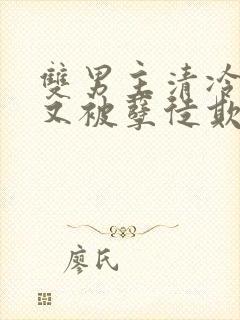 雙男主清冷
又被孽徒欺
廖氏